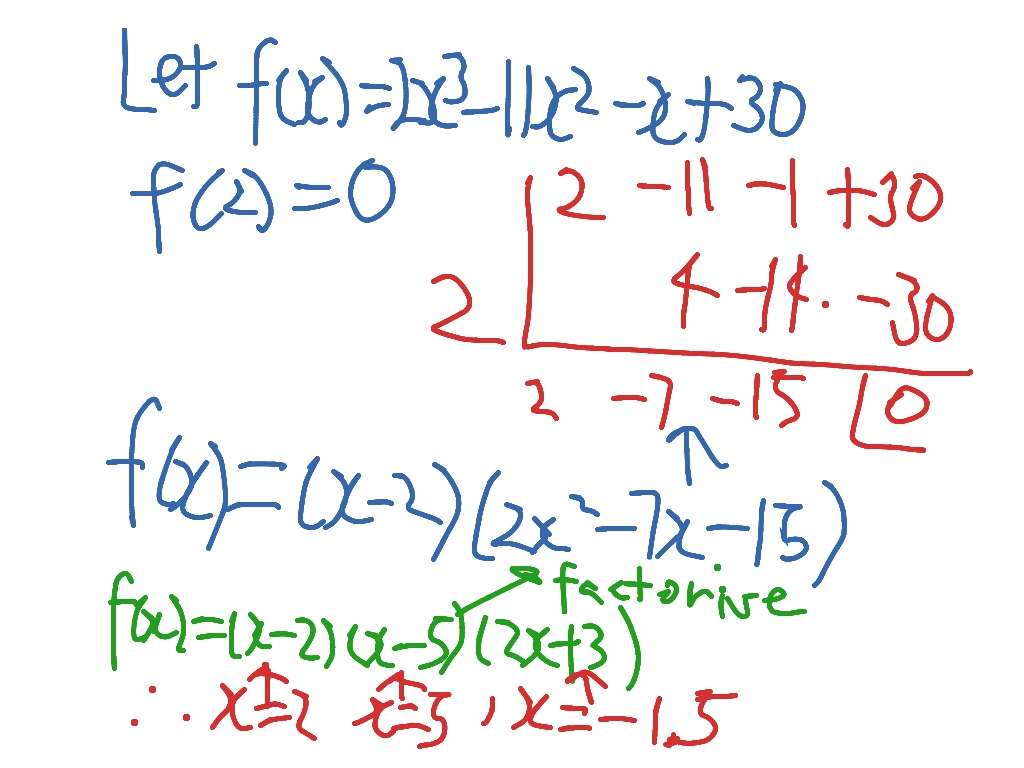 Let f(x)=2x³-11x²-x+30
f(2)=0
2 -11 -1 +30
2 4 -14 . -30
2 -7 -15 0
f(x)=(x-2)(2x²-7x-15)
factorise
f(x)=(x-2)(x-5)(2x+3)
∴ x=2 x=5, x=-1.5